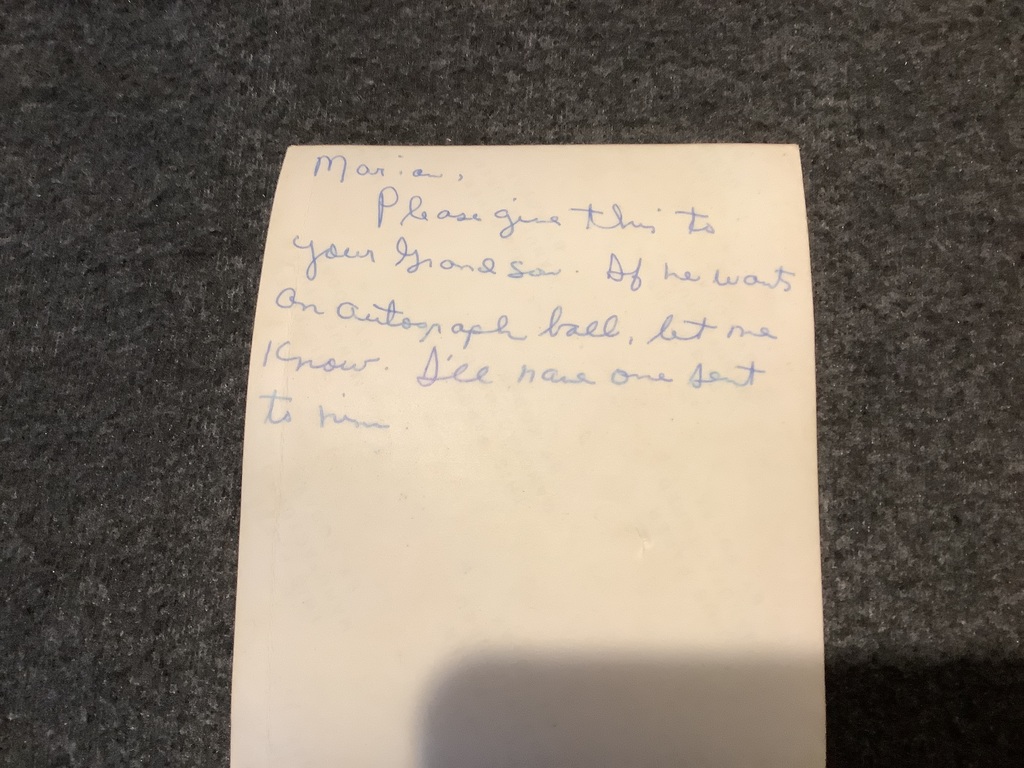 Marian,
Please give this to
your Grandson. If he wants
an autograph ball, let me
know. I'll have one sent
to him